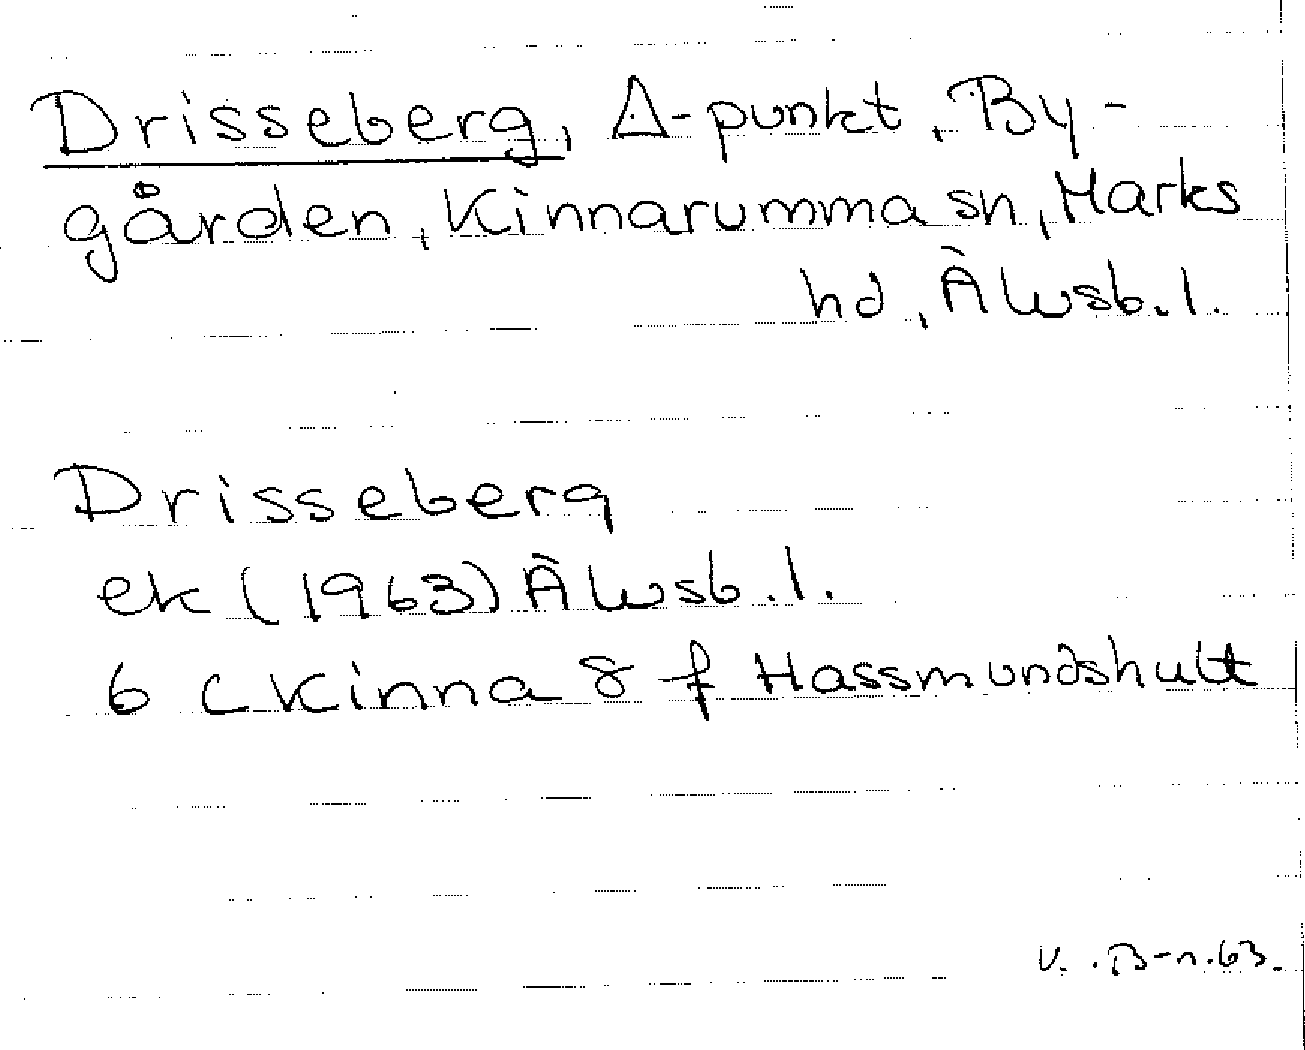 Drisseberg, Δ-punkt, By-
gården, Kinnarumma sn, Marks
hd, Älvsb. l.
Drisseberg
ek (1963) Älvsb. l.
6 C Kinna 8 f Hassmundshult
V. B-n. 63.